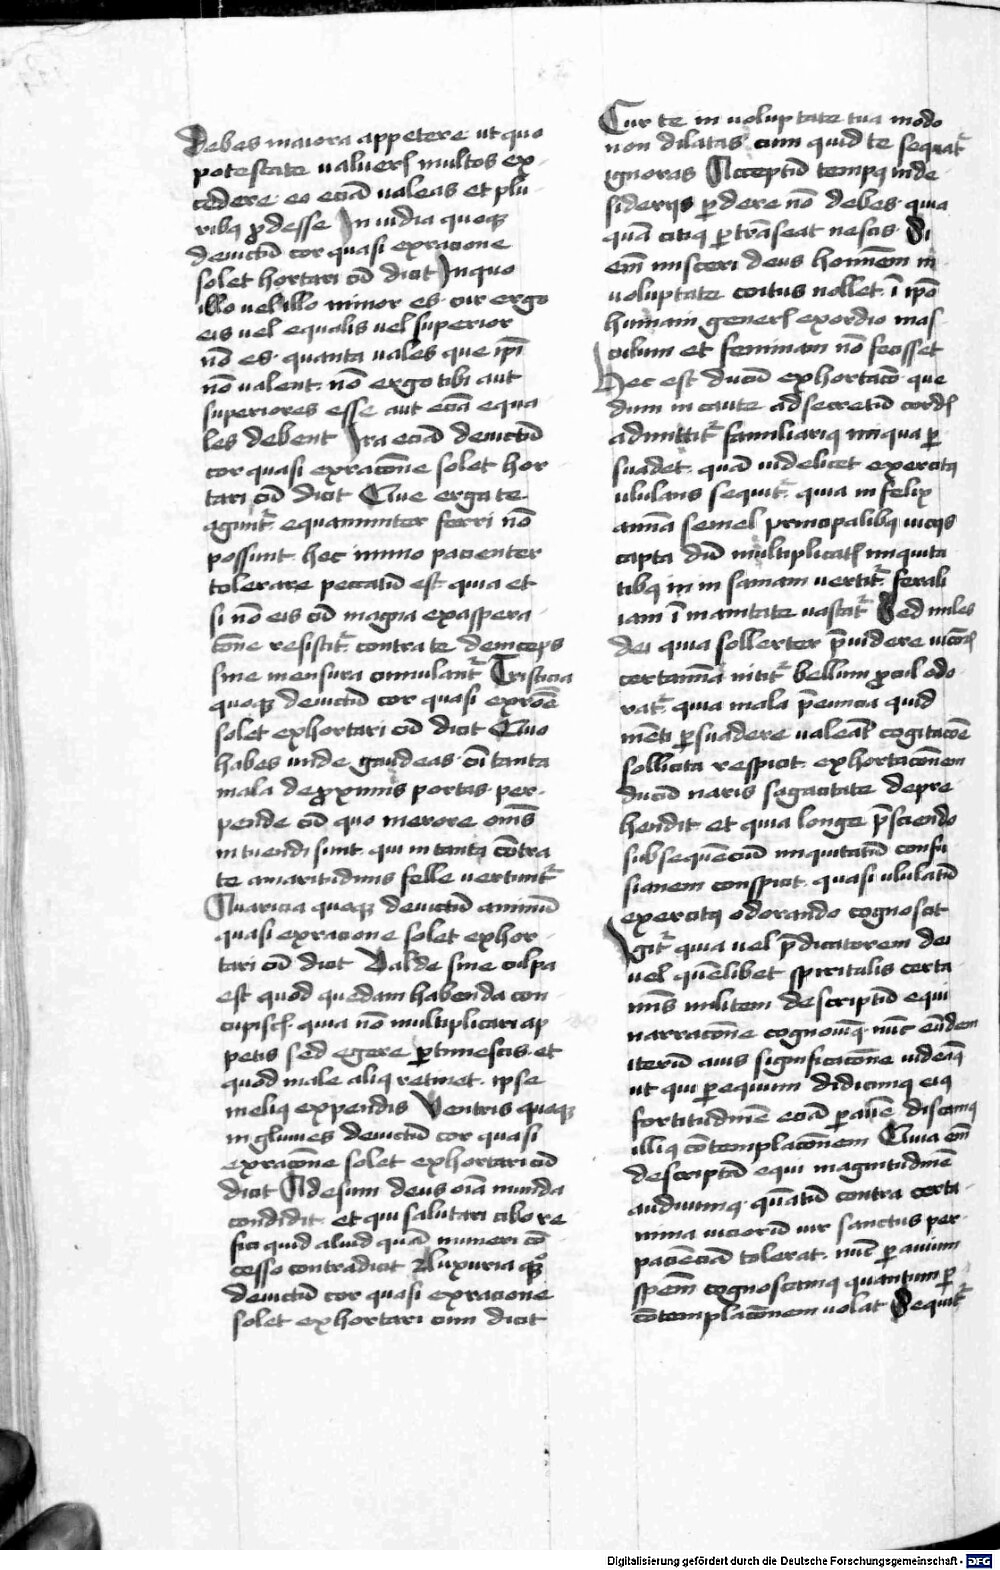 Debes maiora appetere ut quo
potestate valueris multos ex
cedere eo eciā valeas et plu
ribꝫ ꝓdesse Inuidia quoqꝫ
deuictū cor quasi exracione
solet hortari cū dicit Inquo
illo vel illo minor es cur ergo
eis vel equalis vel superior
nō es quanta vales que ipi
nō valent nō ergo tibi aut
superiores esse aut eciā equa
les debent Ira eciā deuictū
cor quasi exracōne solet hor
tari cū dicit Que erga te
agunt᷑ equanimiter ferri nō
possunt hec immo pacienter
tolerare peccatū est quia et
si nō eis cū magna exaspera
cōne resistit᷑ contra te deinceps
sine mensura cumulant᷑ Tristicia
quoqꝫ deuictū cor quasi exrōne
solet exhortari cū dicit Quo
habes unde gaudeas cū tanta
mala deꝓximis portas per
pende cū quo merore om̄s
intuendi sunt qui in tanta cōtra
te amaritudinis felle vertunt᷑
Auaricia quoqꝫ deuictū animū
quasi exracione solet exhor
tari cū dicit Valde sine culpa
est quod quedam habenda con
cupiscis quia nō multiplicari ap
petis sed egere ꝑtimescis et
quod male aliqꝰ retinet ipse
meliꝰ expendis Ventris quoqꝫ
ingluuies deuictū cor quasi
exracōne solet exhortari cū
dicit Ad esum deus oīa munda
condidit et qui salutari cibo re
fici quid aliud quā muneri cō
cesso contradicit Luxuria qꝫ
deuictū cor quasi exracione
solet exhortari cum dicit
Cur te in voluptate tua modo
non dilatas cum quid te sequat᷑
ignoras Acceptū tempꝰ in de
siderijs ꝑdere nō debes quia
quā citiꝰ ꝑtrāseat nescis Si
em̄ misceri deus hominem in
voluptate coitus nollet ī ipō
humani generis exordio mas
culum et feminam nō fecisset
Hec est ducū exhortacō que
dum incaute ad secretū cordis
admittit᷑ familiariꝰ iniqua ꝑ
suadet quā videlicet exercitꝰ
ululans sequit᷑ quia infelix
anima semel principalibꝫ vicijs
capta dū multiplicatis iniquita
tibꝫ in insaniam vertit᷑ ferali
iam īmanitate vastat᷑ Sed miles
dei quia sollerter p̄uidere vicioꝝ
certamina nitit᷑ bellum ꝓcul odo
rat᷑ quia mala p̄euncia quid
menti ꝑsuadere valeāt cogitacōe
sollicita respicit exhortacōnem
ducū naris sagacitate depre
hendit et quia longe p̄sciendo
subsequēciū iniquitatū confu
sionem conspicit quasi ululatū
exercitꝰ odorando cognoscit
Igit᷑ quia vel p̄dicatorem dei
vel quēlibet spiritalis certa
mis militem descriptū equi
narracōne cognouimꝰ nūc eūdem
iterū auis significacōne videamꝰ
ut qui ꝑ equum didicimꝰ eiꝰ
fortitudinē eciā ꝑ auē discamꝰ
illiꝰ cōtemplacōnem Quia em̄
descriptā equi magnitudinē
audiuimꝰ quātū contra certa
mina viciorū vir sanctus per
pacienciā tolerat nūc ꝑ auium
spēm cognoscamꝰ quantum ꝑ
cōtemplacōnem volat Sequit᷑
Digitalisierung gefördert durch die Deutsche Forschungsgemeinschaft - DFG